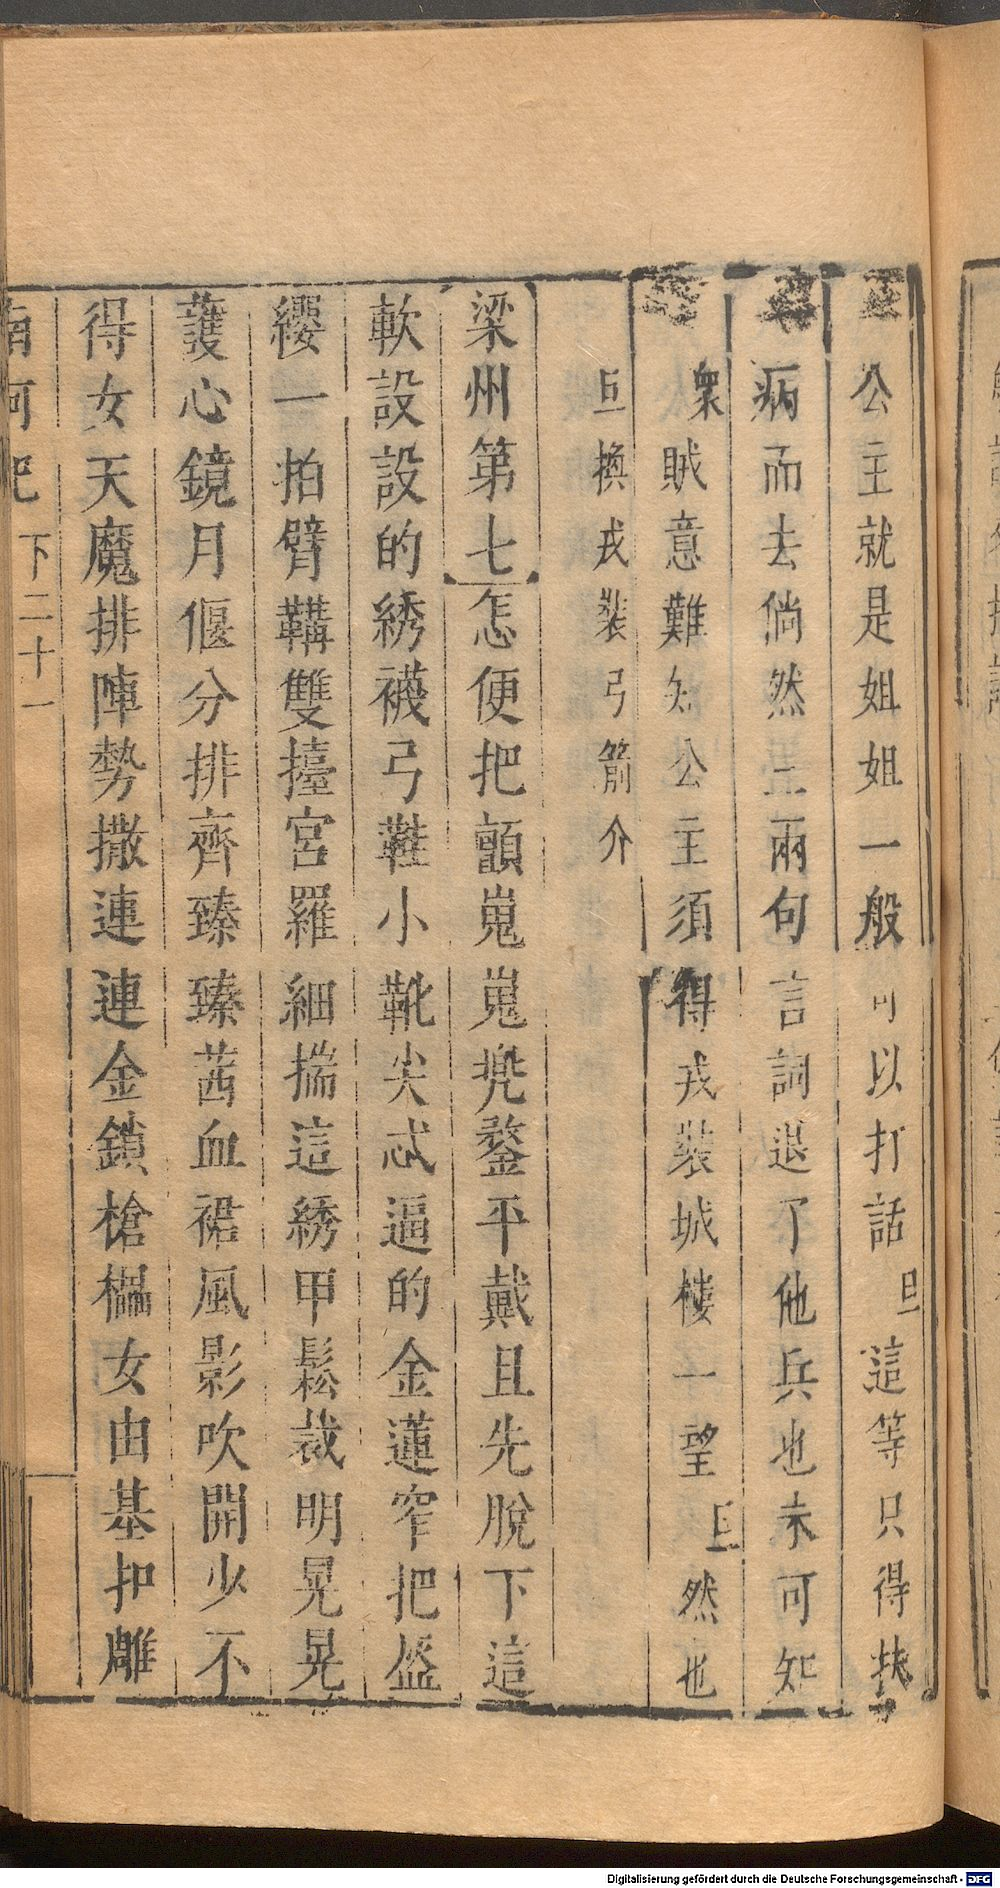 公主就是姐姐一般可以打話旦這等只得扶
病而去倘然三兩句言詞退了他兵也未可知
衆賊意難知公主須得戎裝城樓一望旦然也
旦換戎裝弓箭介
梁州第七怎便把顫嵬嵬兠鍪平戴且先脫下這
軟設設的綉襪弓鞋小靴尖忒逼的金蓮窄把盔
纓一拍臂鞲雙擡宮羅細揣這綉甲鬆裁明晃晃
護心鏡月偃分排齊臻臻茜血裙風影吹開少不
得女天魔排陣勢撒連連金鎖槍櫑女由基扣雕
南柯记 下二十一
Digitalisierung gefördert durch die Deutsche Forschungsgemeinschaft - DFG